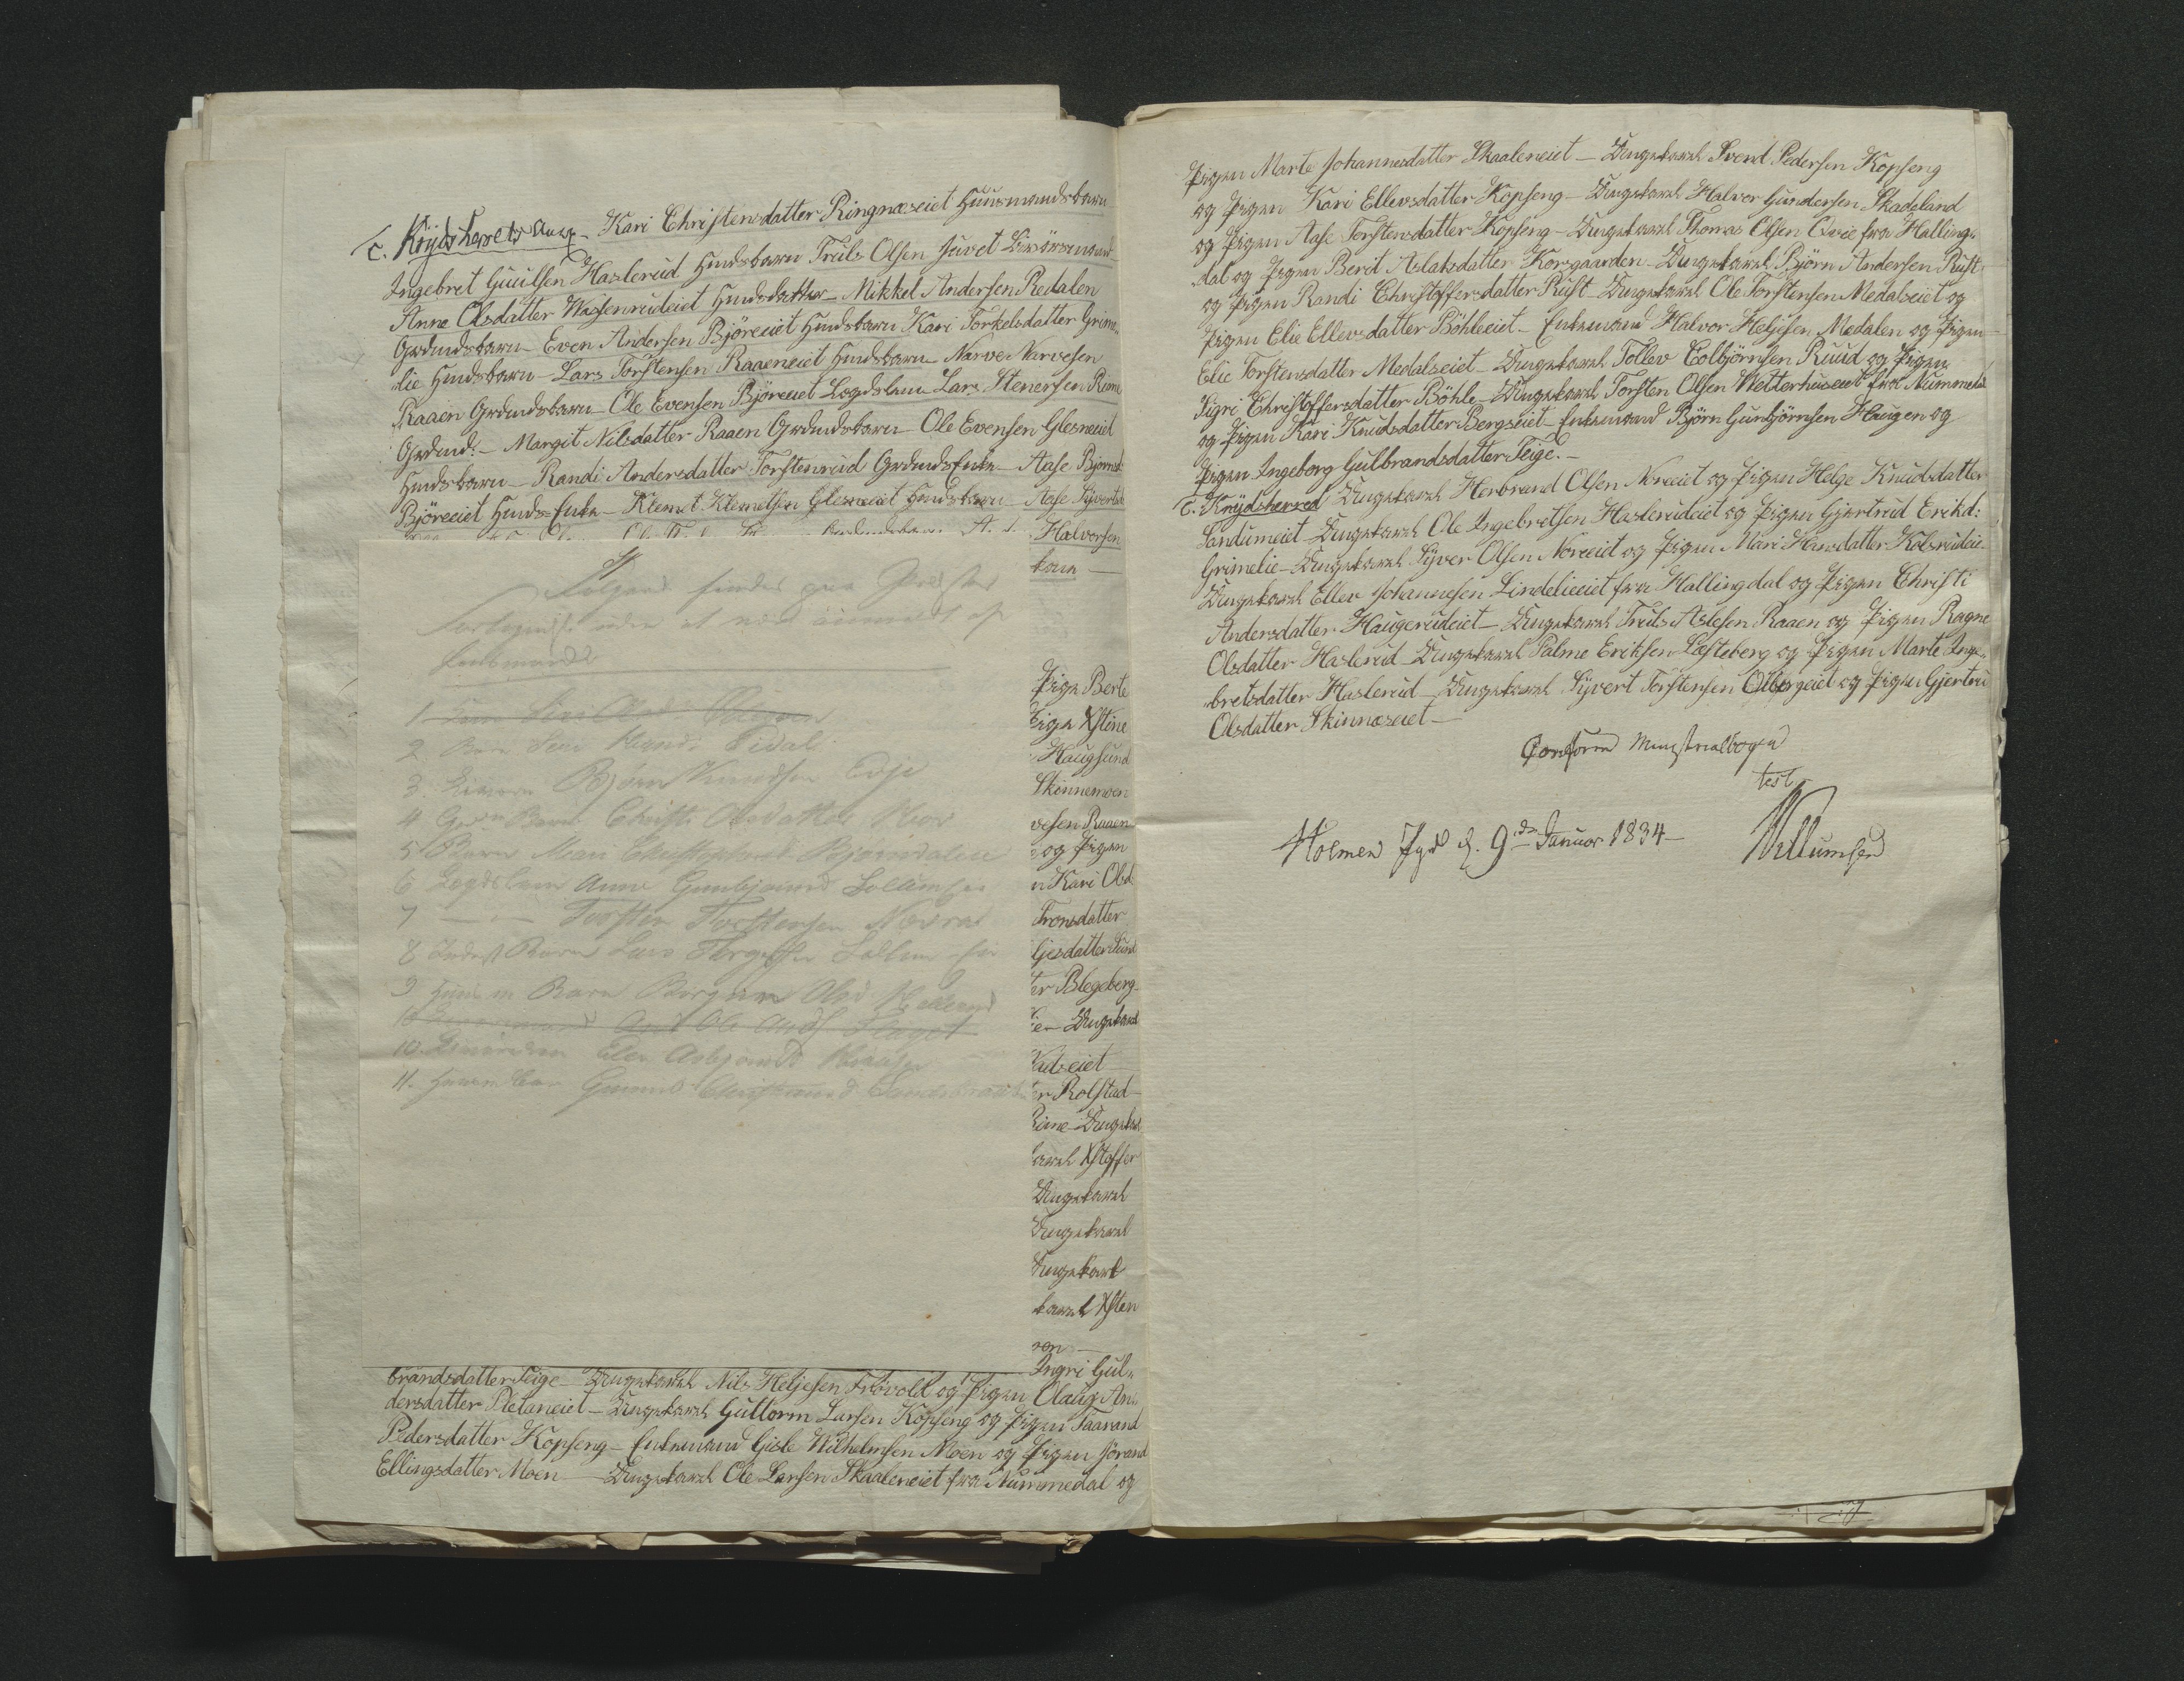 C. Krydsherred Anex – Kari Christensdatter Ringnæseiet Huusmandsbarn
Ingebret Guulsen Haslerud Hmdsbarn Truls Olsen Juvet
Anne Olsdatter Wassenrudeiet Hmdsdatter – Mikkel Andersen Redalen
Grdmdsbarn – Even Andersen Björeeiet Hmdsbarn Kari Torkelsdatter Grime-
lie Hmdsbarn – Lars Torstensen Raaeneiet Hmdsbarn – Narve Narvesen
Raaen Grdmdsbarn – Ole Evensen Björeeiet Lægdslem Lars Stenersen Rime
Grdmd: – Margit Nilsdatter Raaen Grdmdsbarn – Ole Evensen Glesneeiet
Hmdsbarn – Randi Andersdatter Torstenrud GrdmdsEnke – Aase Bjørnsd:
Björeeiet HmdsEnke – Klemet Klemetsen Glesneeiet Hmdsbarn – Aase Syvertsd
Halvorsen
kone –
Følgende findes paa
Fortegnelse uden at være anmeldt af
Lensmanden
1
2 Barn
3. Björn Knudsen
4 Barn Christi Olsdatter
5 Barn Mari
6 Lægdslem Anne Gunbjørnsd
7 – Torsten Torstensen
8 Barn Lars
9 Barn
Ole
10.
11. Gunnild
Pige Berte
Pige Xstine
Haugsund
Skinnemoen
vesen Raaen
og Pigen
n Kari Olsd
Tronsdatter
ljesdatter Sund
ter Blegeberg –
er – Ungekarl
rudseiet
er Rolstad –
Rime – Ungekarl
karl Xstoffer
Ungekarl
Ungekarl
Ungekarl
karl Xsten
ron –
Ingri Gul-
brandsdatter Teige – Ungekarl Nils Heljesen Frövold og Pigen Olaug An-
dersdatter Pletaneiet – Ungekarl Guttorm Larsen Kopseng og Pigen Taarand
Pedersdatter Kopseng – Enkemand Gisle Wilhelmsen Moen og Pigen Jörand
Ellingsdatter Moen – Ungekarl Ole Larsen Skaaleneiet fra Nummedal og
Pigen Marte Johannesdatter Skaaleneiet – Ungekarl Svend Pedersen Kopseng
og Pigen Kari Ellevsdatter Kopseng – Ungekarl Halvor Gundersen Skadeland
og Pigen Aase Torstensdatter Kopseng – Ungekarl Thomas Olsen Evie fra Halling-
dal og Pigen Berit Aslaksdatter Korsgaarden – Ungekarl Björn Andersen Rust
og Pigen Randi Christoffersdatter Rust – Ungekarl Ole Torstensen Medalseiet og
Pigen Elie Ellevsdatter Böhleeiet – Enkemand Halvor Heljesen Medalen og Pigen
Elie Torstensdatter Medalseiet – Ungekarl Tollev Colbjörnsen Ruud og Pigen
Sigri Christoffersdatter Böhle – Ungekarl Torsten Olsen Wetterhuseeiet fra Nummedal
og Pigen Kari Knudsdatter Bergseiet – Enkemand Björn Gunbjörnsen Haugen og
Pigen Ingeborg Gulbrandsdatter Teige. –
C. Krydsherred Ungekarl Herbrand Olsen Noreeiet og Pigen Helge Knudsdatter
Sandumeiet – Ungekarl Ole Ingebretsen Haslerudeiet og Pigen Gjertrud Eriksd:
Grimelie – Ungekarl Syver Olsen Noreeiet og Pigen Mari Hansdatter Kolsrudeie
Ungekarl Ellev Johannesen Lindelieeiet fra Hallingdal og Pigen Christi
Andersdatter Haugerudeiet – Ungekarl Truls Aslesen Raaen og Pigen Ragne
Olsdatter Haslerud – Ungekarl Palme Eriksen Læsteberg og Pigen Marte Inge-
bretsdatter Haslerud – Ungekarl Syvert Torstensen Olbergeiet og Pigen Gjertru
Olsdatter Skinnæseiet –
Conform Ministrialbogen
test
Holmen Pgd d. 9de Januar 1834 – Willumsen